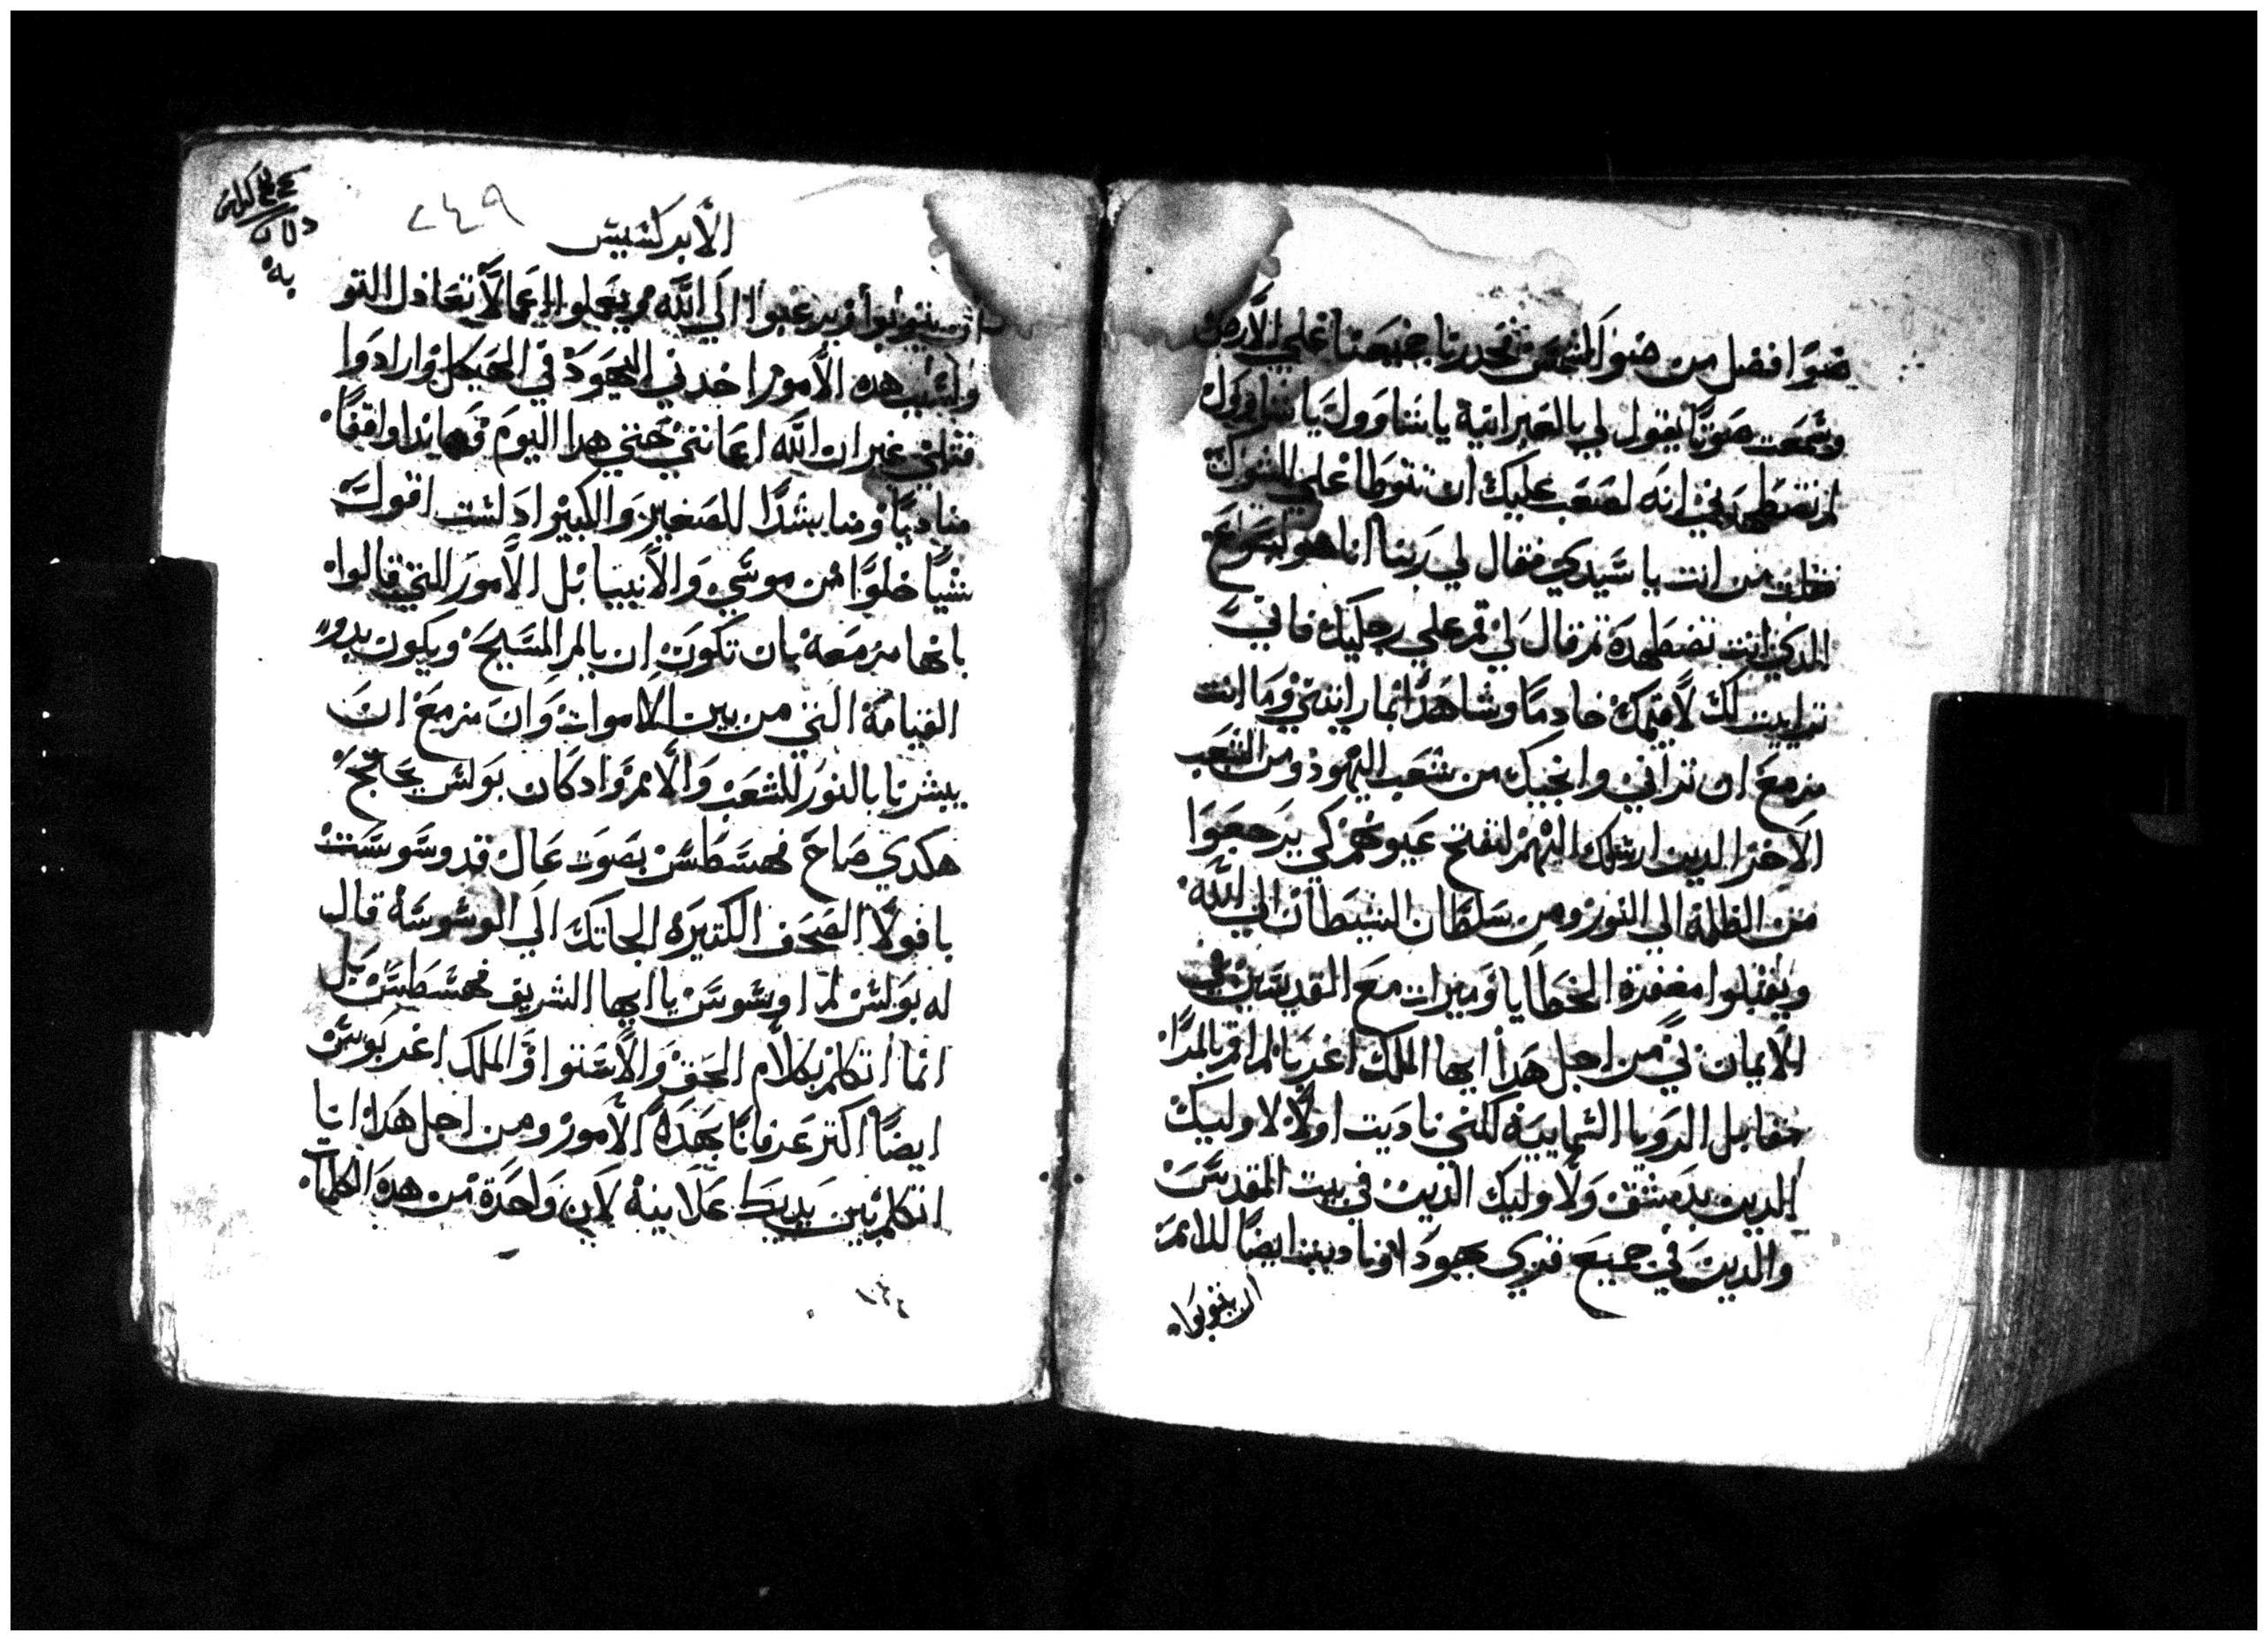 ضوا افضل من ضو الشمس فخررنا جميعنا علي الارض
وسمعت صوتا يقول لي بالعبرانية يا شاوول يا شاوول
لم تضطهدني انه لصعب عليك ان تتوطا علي الشوك
فقلت من انت يا سيدي فقال لي ربنا انا هو ايسوع
الذي انت تضطهده ثم قال لي قم علي رجليك فاني
ترايت لك لاقيمك خادما وشاهدا بما رايتني وما انت
مزمع ان تراني وانجيك من شعب اليهود ومن الشعب
الاخر الدين ارسلك اليهم لتفتح عيونهم كي يرجعوا
من الظلمة الي النور ومن سلطان الشيطان الي الله
ويقبلوا مغفرة الخطايا وميرات مع القديسين في
الايمان بي من اجل هدا ايها الملك اغربا لم اقم بالمرا
مقابل الرويا السمايية لكنني ناديت اولا لاوليك
الدين بدمشق ولاوليك الدين في بيت المقدس
والدين في جميع قري يهودا وناديت ايضا للامم
ان يتوبوا
٢٤٩
الابركسيس
ان يتوبوا ويرغبوا الي الله ويعملوا اعمالا تعادل التو
ولسبب هده الامور اخدني اليهود في الهيكل وارادوا
قتلي غير ان الله اعانني حتي هدا اليوم وهاندا واقفا
مناديا ومناشدا للصغير والكبير اد لست اقول
شيا خلوا من موسي والانبيا بل الامور التي قالوا
بانها مزمعة بان تكون ان يالم المسيح ويكون بدو
القيامة التي من بين الاموات وان مزمع ان
يبشرنا بالنور للشعب والامم واد كان بولس يحاجج
هكدي صاح فهسطس بصوت عال قد وسوست
يا فولا الصحف الكتيره الجاتك الي الوسوسة قال
له بولس لم اوسوس يا ايها الشريف فهسطس بل
انما اتكلم بكلام الحق والاستوا والملك اغربوس
ايضا اكتر عرفانا بهده الامور ومن اجل هدا انا
اتكلم بين يديك علانية لان واحدة من هده الكلمات